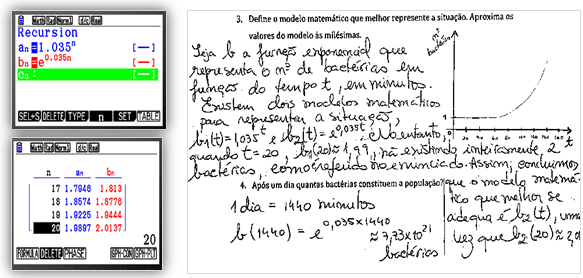 Math Rad Norm1 d/c Real
Recursion
an=1.035ⁿ [—]
bn=e^0.035n [—]
cn: [—]
SEL+S DELETE TYPE n SET TABLE
Math Rad Norm1 d/c Real
n an bn
17 1.7946 1.813
18 1.8574 1.8776
19 1.9225 1.9444
20 1.9897 2.0137
20
FORMULA DELETE PHASE GPH-CON GPH-PLT
3. Define o modelo matemático que melhor represente a situação. Aproxima os
valores do modelo às milésimas.
Seja b a função exponencial que
representa o nº de bactérias em
função do tempo t, em minutos.
Existem dois modelos matemáticos
para representar a situação,
b₁(t)=1,035^t e b₂(t)=e^0,035t. No entanto,
quando t=20, b₁(20)≈1,99, não existindo inteiramente 2
bactérias, como é referido no enunciado. Assim, concluímos
nº
bactérias
1
t
4. Após um dia quantas bactérias constituem a população?
que o modelo matemá-
tico que melhor se
adequa é b₂(t), uma
vez que b₂(20)≈2,01
1 dia = 1440 minutos
b(1440) = e^0,035×1440
≈ 7,73×10²¹
bactérias